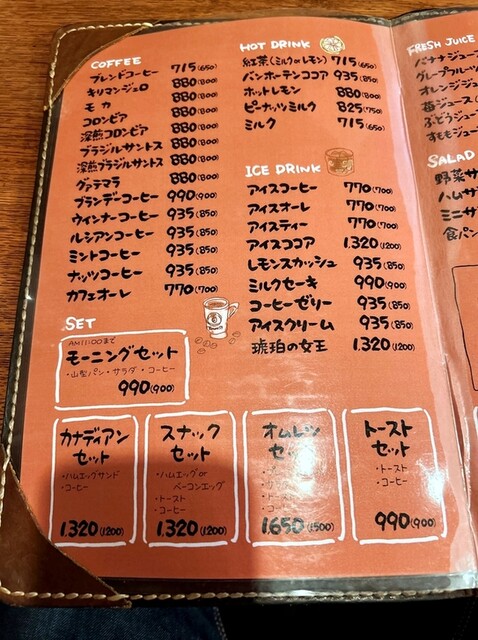 COFFEE
ブレンドコーヒー 715(650)
キリマンジェロ 880(800)
モカ 880(800)
コロンビア 880(800)
深煎コロンビア 880(800)
ブラジルサントス 880(800)
深煎ブラジルサントス 880(800)
グァテマラ 880(800)
ブランデーコーヒー 990(900)
ウインナーコーヒー 935(850)
ルシアンコーヒー 935(850)
ミントコーヒー 935(850)
ナッツコーヒー 935(850)
カフェオーレ 770(700)
HOT DRINK
紅茶(ミルクorレモン) 715(650)
バンホーテンココア 935(850)
ホットレモン 880(800)
ピーナッツミルク 825(750)
ミルク 715(650)
ICE DRINK
アイスコーヒー 770(700)
アイスオーレ 770(700)
アイスティー 770(700)
アイスココア 1.320(1200)
レモンスカッシュ 935(850)
ミルクセーキ 990(900)
コーヒーゼリー 935(850)
アイスクリーム 935(850)
琥珀の女王 1.320(1200)
SET
AM11:00まで
モーニングセット
・山型パン・サラダ・コーヒー
990(900)
カナディアン
セット
・ハムエッグサンド
・コーヒー
1.320(1200)
スナック
セット
・ハムエッグor
ベーコンエッグ
・トースト
・コーヒー
1.320(1200)
オムレツ
セット
・トースト
・コーヒー
1.650(1500)
トースト
セット
・トースト
・コーヒー
990(900)
FRESH JUICE
バナナジュース
グレープフルーツ
オレンジジュ
苺ジュース
ぶどうジュー
すももジュー
SALAD
野菜サ
ハムサ
ミニサ
食パン